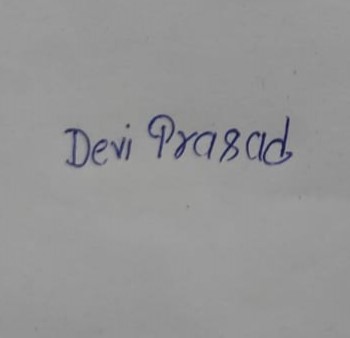 Devi Prasad